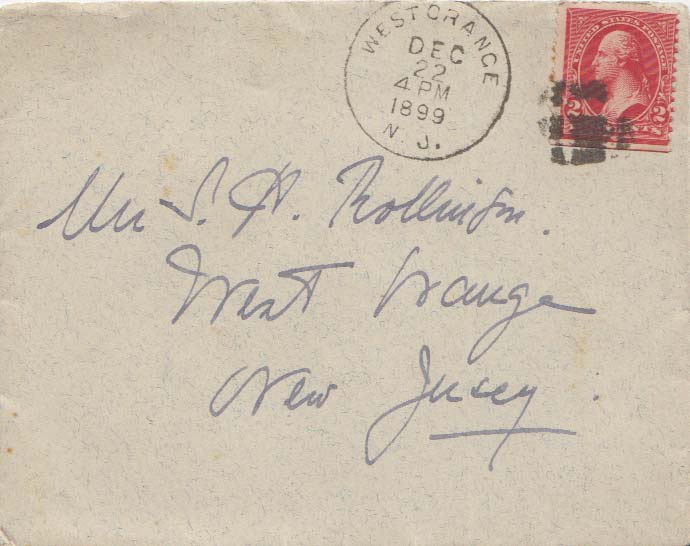 WEST ORANGE
DEC
22
4 PM
1899
N. J.
UNITED STATES POSTAGE
2 CENTS 2
S. H. Rollinson.
West Orange
New Jersey.